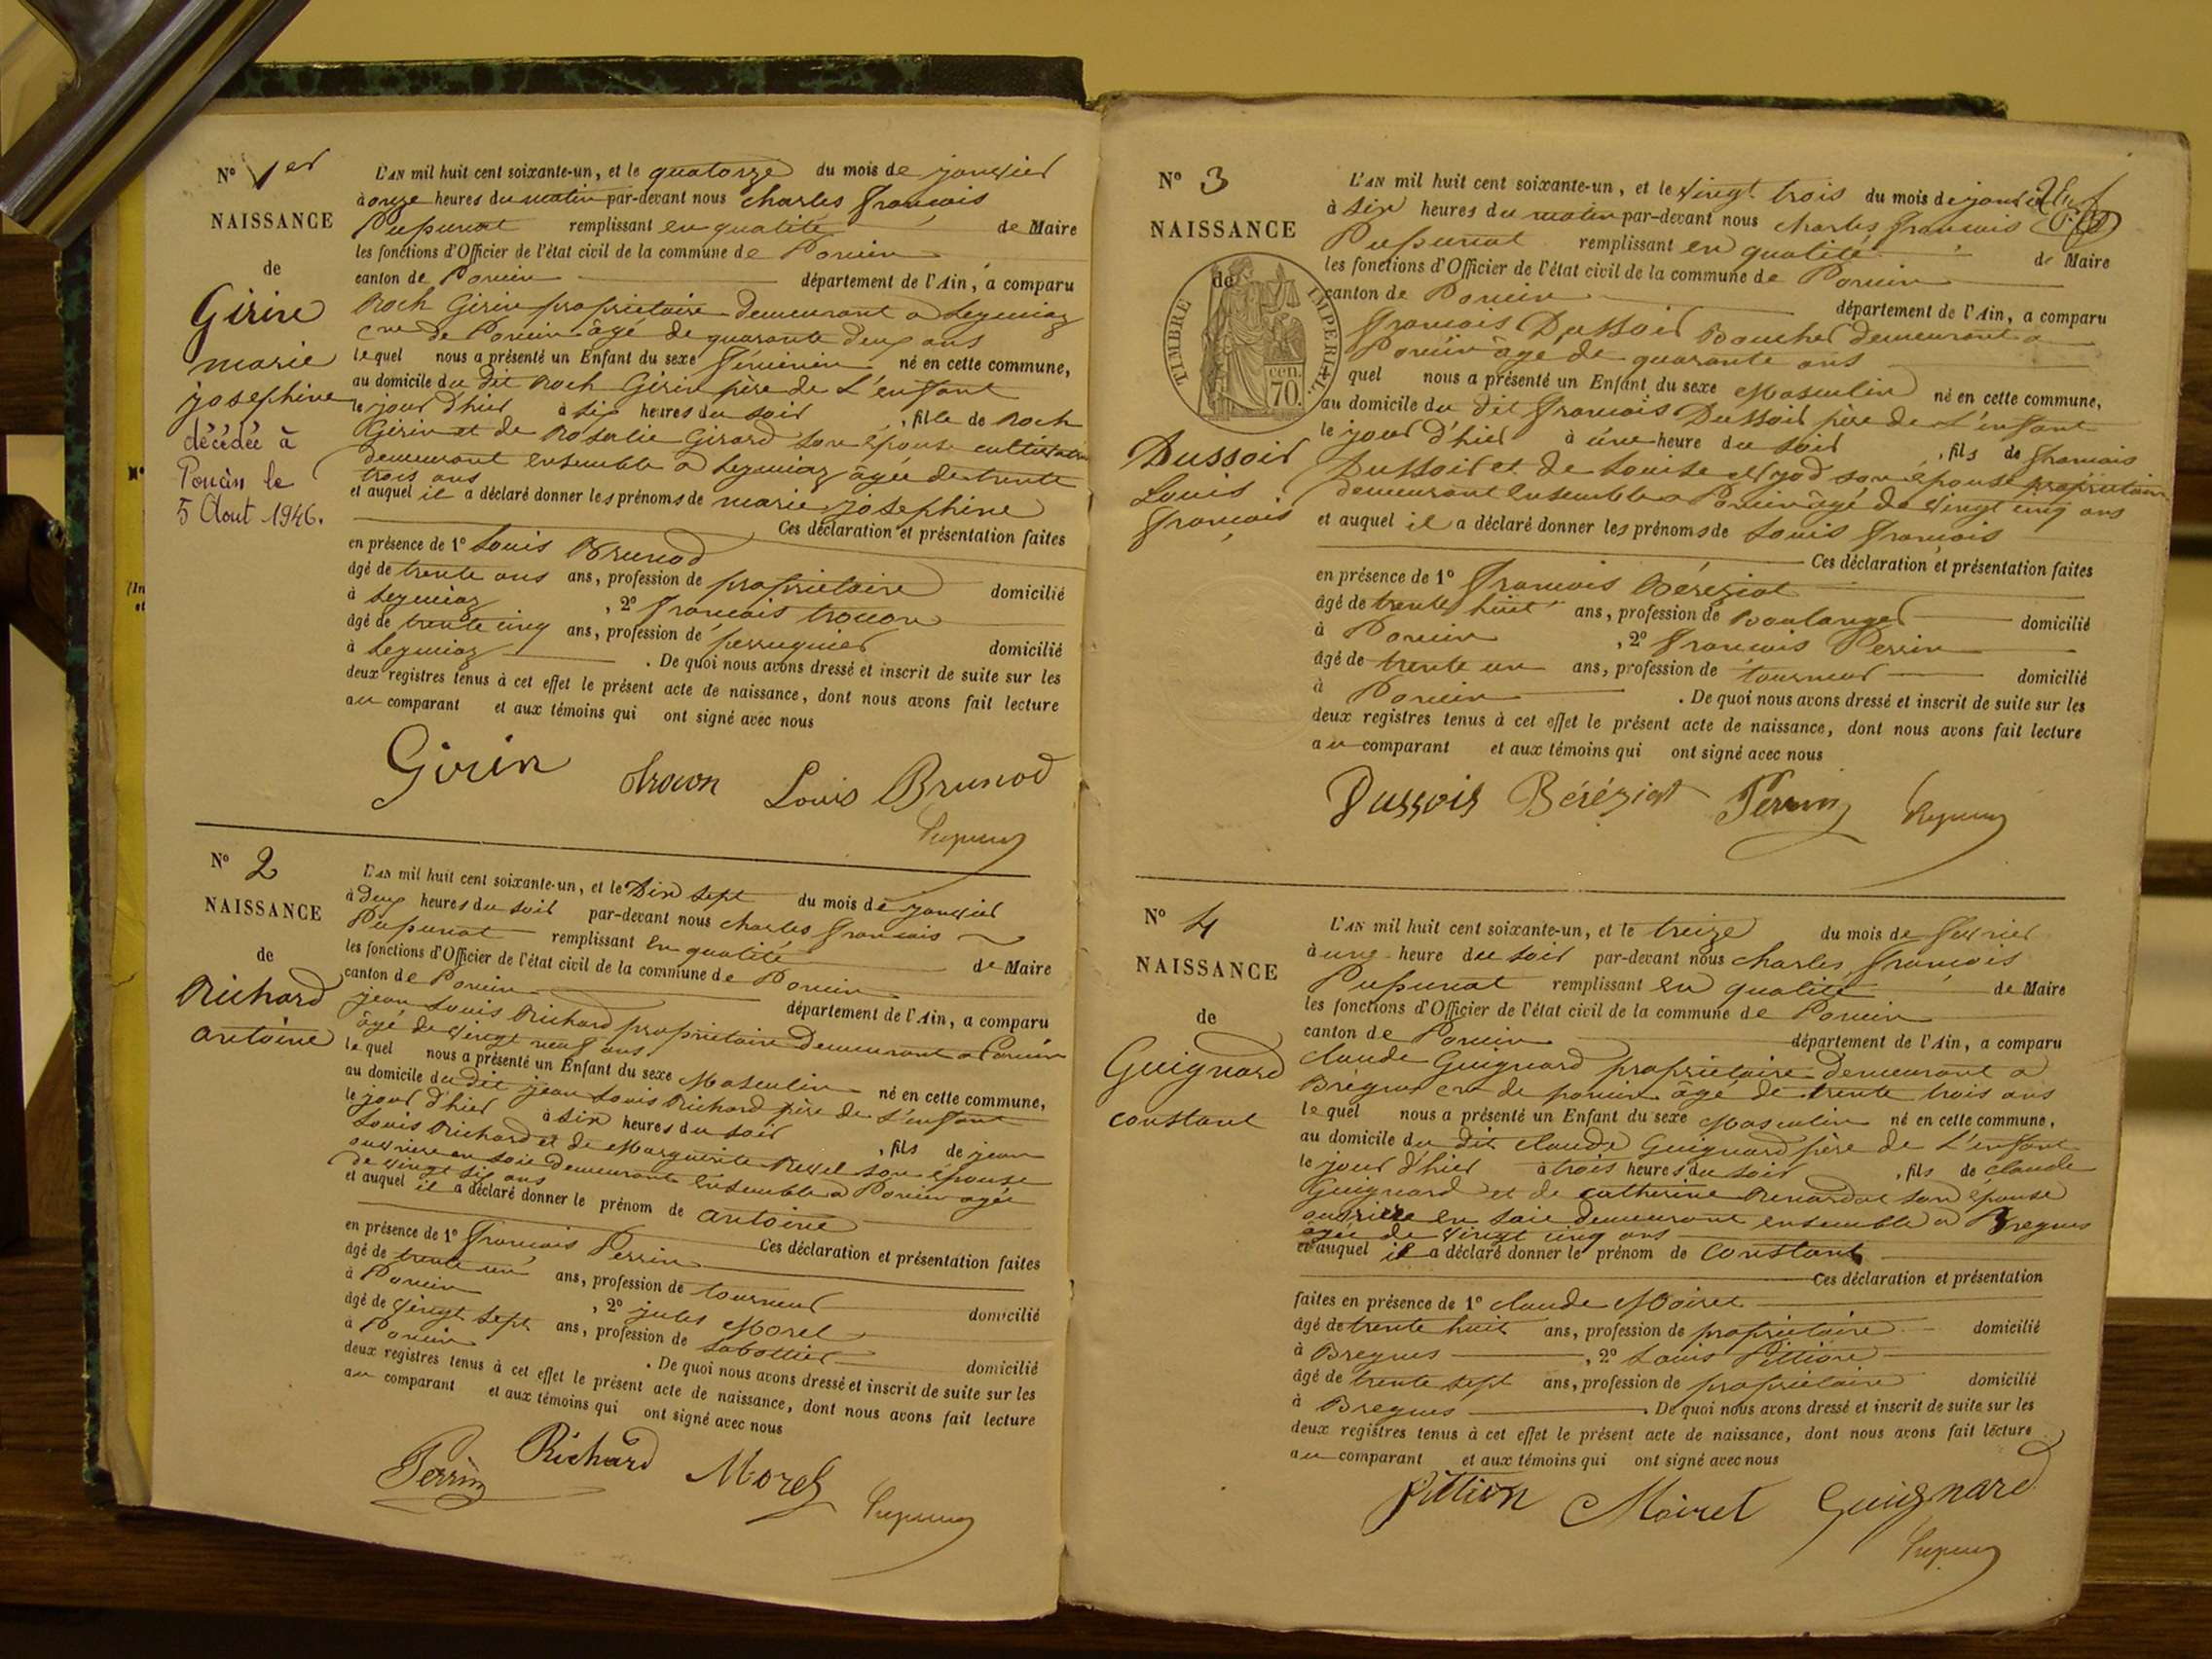 N° 1er
NAISSANCE
de
Girin
marie
josephine
décédée à
Poncin le
5 Aout 1946.
L'AN mil huit cent soixante-un, et le quatorze du mois de janvier
à onze heures du matin par-devant nous charles francois
Pupunat remplissant en qualité de Maire
les fonctions d'Officier de l'état civil de la commune de Poncin
canton de Poncin département de l'Ain, a comparu
Roch Girin propriétaire demeurant a Leymiaz
cne de Poncin âgé de quarante deux ans
lequel nous a présenté un Enfant du sexe féminin né en cette commune,
au domicile du dit Roch Girin père de L'enfant
le jour d'hier à six heures du soir , fille de Roch
Girin et de Rosalie Girard son épouse cultivatrice
demeurant ensemble a Leymiaz âgée de trente
trois ans
et auquel il a déclaré donner les prénoms de marie josephine
Ces déclaration et présentation faites
en présence de 1° Louis Brunod
âgé de trente ans ans, profession de propriétaire domicilié
à Leymiaz , 2° francois trocon
âgé de trente cinq ans, profession de perruquier domicilié
à Leymiaz . De quoi nous avons dressé et inscrit de suite sur les
deux registres tenus à cet effet le présent acte de naissance, dont nous avons fait lecture
au comparant et aux témoins qui ont signé avec nous
Girin Trocon Louis Brunod
Pupunat
N° 2
NAISSANCE
de
Richard
antoine
L'AN mil huit cent soixante-un, et le Dix sept du mois de janvier
à deux heures du soir par-devant nous charles francois
Pupunat remplissant en qualité de Maire
les fonctions d'Officier de l'état civil de la commune de Poncin
canton de Poncin département de l'Ain, a comparu
jean Louis Richard propriétaire demeurant a Poncin
âgé de vingt neuf ans
lequel nous a présenté un Enfant du sexe Masculin né en cette commune,
au domicile du dit jean Louis Richard père de L'enfant
le jour d'hier à dix heures du soir , fils de jean
Louis Richard et de Marguerite son épouse
ouvriere en soie demeurant ensemble a Poncin agée
de vingt six ans
et auquel il a déclaré donner le prénom de antoine
Ces déclaration et présentation faites
en présence de 1° francois Perrin
âgé de trente un ans, profession de tourneur domicilié
à Poncin , 2° jules Morel
âgé de vingt sept ans, profession de sabottier domicilié
à Poncin . De quoi nous avons dressé et inscrit de suite sur les
deux registres tenus à cet effet le présent acte de naissance, dont nous avons fait lecture
au comparant et aux témoins qui ont signé avec nous
Perrin Richard Morel
Pupunat
N° 3
NAISSANCE
de
TIMBRE IMPERIAL
70 cen.
Dussoir
Louis
francois
L'AN mil huit cent soixante-un, et le vingt trois du mois de janvier
à dix heures du matin par-devant nous charles francois
Pupunat remplissant en qualité de Maire
les fonctions d'Officier de l'état civil de la commune de Poncin
canton de Poncin département de l'Ain, a comparu
francois Dussoir Boucher demeurant a
Poncin âgé de quarante ans
quel nous a présenté un Enfant du sexe Masculin né en cette commune,
au domicile du dit francois Dussoir père de L'enfant
le jour d'hier à une heure du soir , fils de francois
Dussoir et de Louise son épouse propriétaire
demeurant ensemble a Poncin âgé de vingt cinq ans
et auquel il a déclaré donner les prénoms de Louis francois
Ces déclaration et présentation faites
en présence de 1° francois Béréziat
âgé de trente huit ans, profession de Boulanger domicilié
à Poncin , 2° francois Perrin
âgé de trente un ans, profession de tourneur domicilié
à Poncin . De quoi nous avons dressé et inscrit de suite sur les
deux registres tenus à cet effet le présent acte de naissance, dont nous avons fait lecture
au comparant et aux témoins qui ont signé avec nous
Dussoir Béréziat Perrin Pupunat
N° 4
NAISSANCE
de
Guignard
constant
L'AN mil huit cent soixante-un, et le treize du mois de fevrier
à une heure du soir par-devant nous charles francois
Pupunat remplissant en qualité de Maire
les fonctions d'Officier de l'état civil de la commune de Poncin
canton de Poncin département de l'Ain, a comparu
claude Guignard propriétaire demeurant a
Bregnes cne de poncin âgé de trente trois ans
lequel nous a présenté un Enfant du sexe Masculin né en cette commune,
au domicile du dit claude Guignard père de L'enfant
le jour d'hier à trois heures du soir , fils de claude
Guignard et de catherine Renardat son épouse
ouvriere en soie demeurant ensemble a Bregnes
agée de vingt cinq ans
et auquel il a déclaré donner le prénom de constant
Ces déclaration et présentation
faites en présence de 1° claude Moiret
âgé de trente huit ans, profession de propriétaire domicilié
à Bregnes , 2° Louis Pittion
âgé de trente sept ans, profession de propriétaire domicilié
à Bregnes . De quoi nous avons dressé et inscrit de suite sur les
deux registres tenus à cet effet le présent acte de naissance, dont nous avons fait lecture
au comparant et aux témoins qui ont signé avec nous
Pittion Moiret Guignard
Pupunat